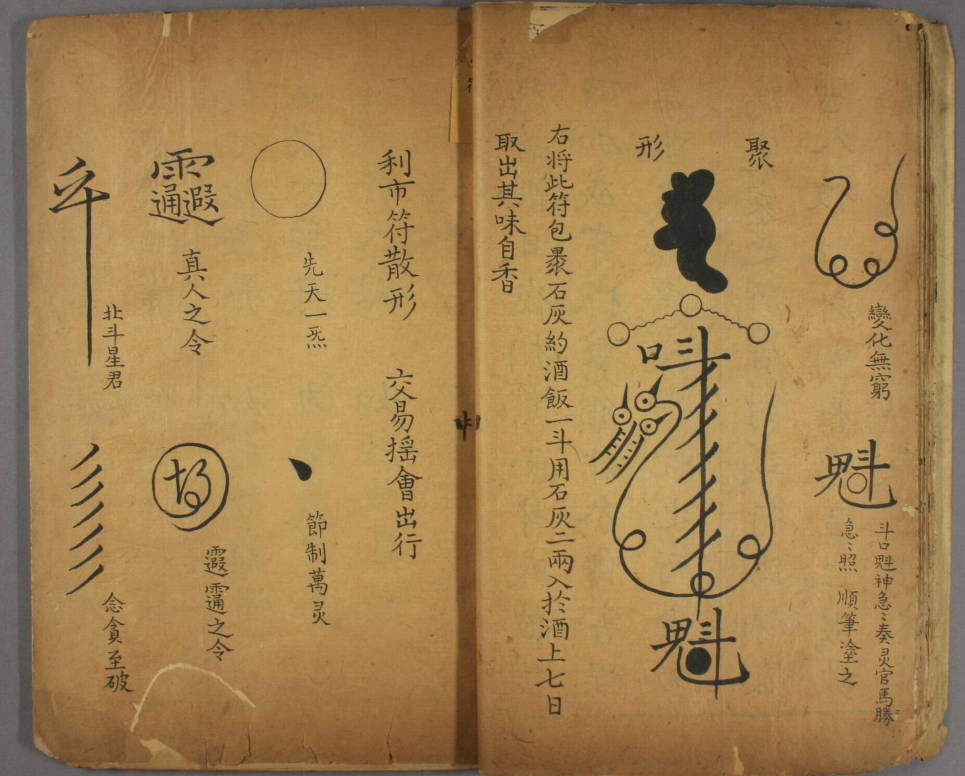 變化無窮
魁
斗口魁神急〻奏灵官馬勝
急〻照 順筆塗之
聚
形
魁
右将此符包裹石灰約酒飯一斗用石灰二兩入扵酒上七日
取出其味自香
利市符散形 交易摇會出行
先天一炁
節制萬灵
真人之令
霞靈之令
北斗星君
念貪至破